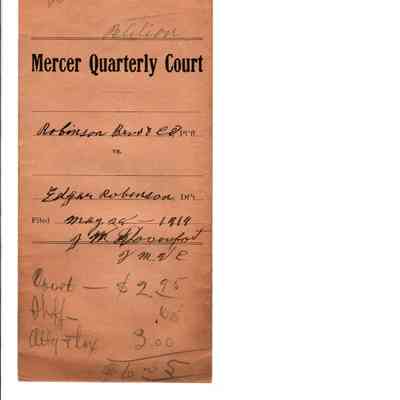 Petition
Mercer Quarterly Court
Robinson Bros & Co Pl'ff
vs.
Edgar Robinson Df't
Filed May 1919
J M Davenport
J M Q C
Court — $ 2.95
Shff
Atty + Tax 3.00